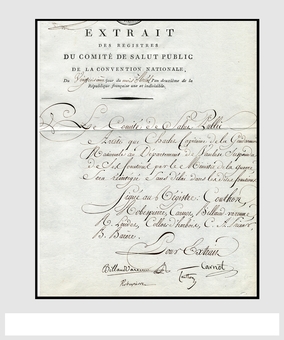 EXTRAIT
DES REGISTRES
DU COMITÉ DE SALUT PUBLIC
DE LA CONVENTION NATIONALE,
Du jour du mois l'an deuxième de la
République française une et indivisible.
Le Comité de Salut Public
Arrête que Capitaine de la Gendarmerie
Nationale au Département de Vaucluse
de ses fonctions par le Ministre de la guerre,
Sera réintégré Sans délai dans
Signé au Registre Couthon,
Robespierre, Carnot, Billaud varenne
R. Lindet, Collot d'herbois, C. A. Prieur
B. Barère
Pour Extrait
Billaud varenne Carnot
Robespierre